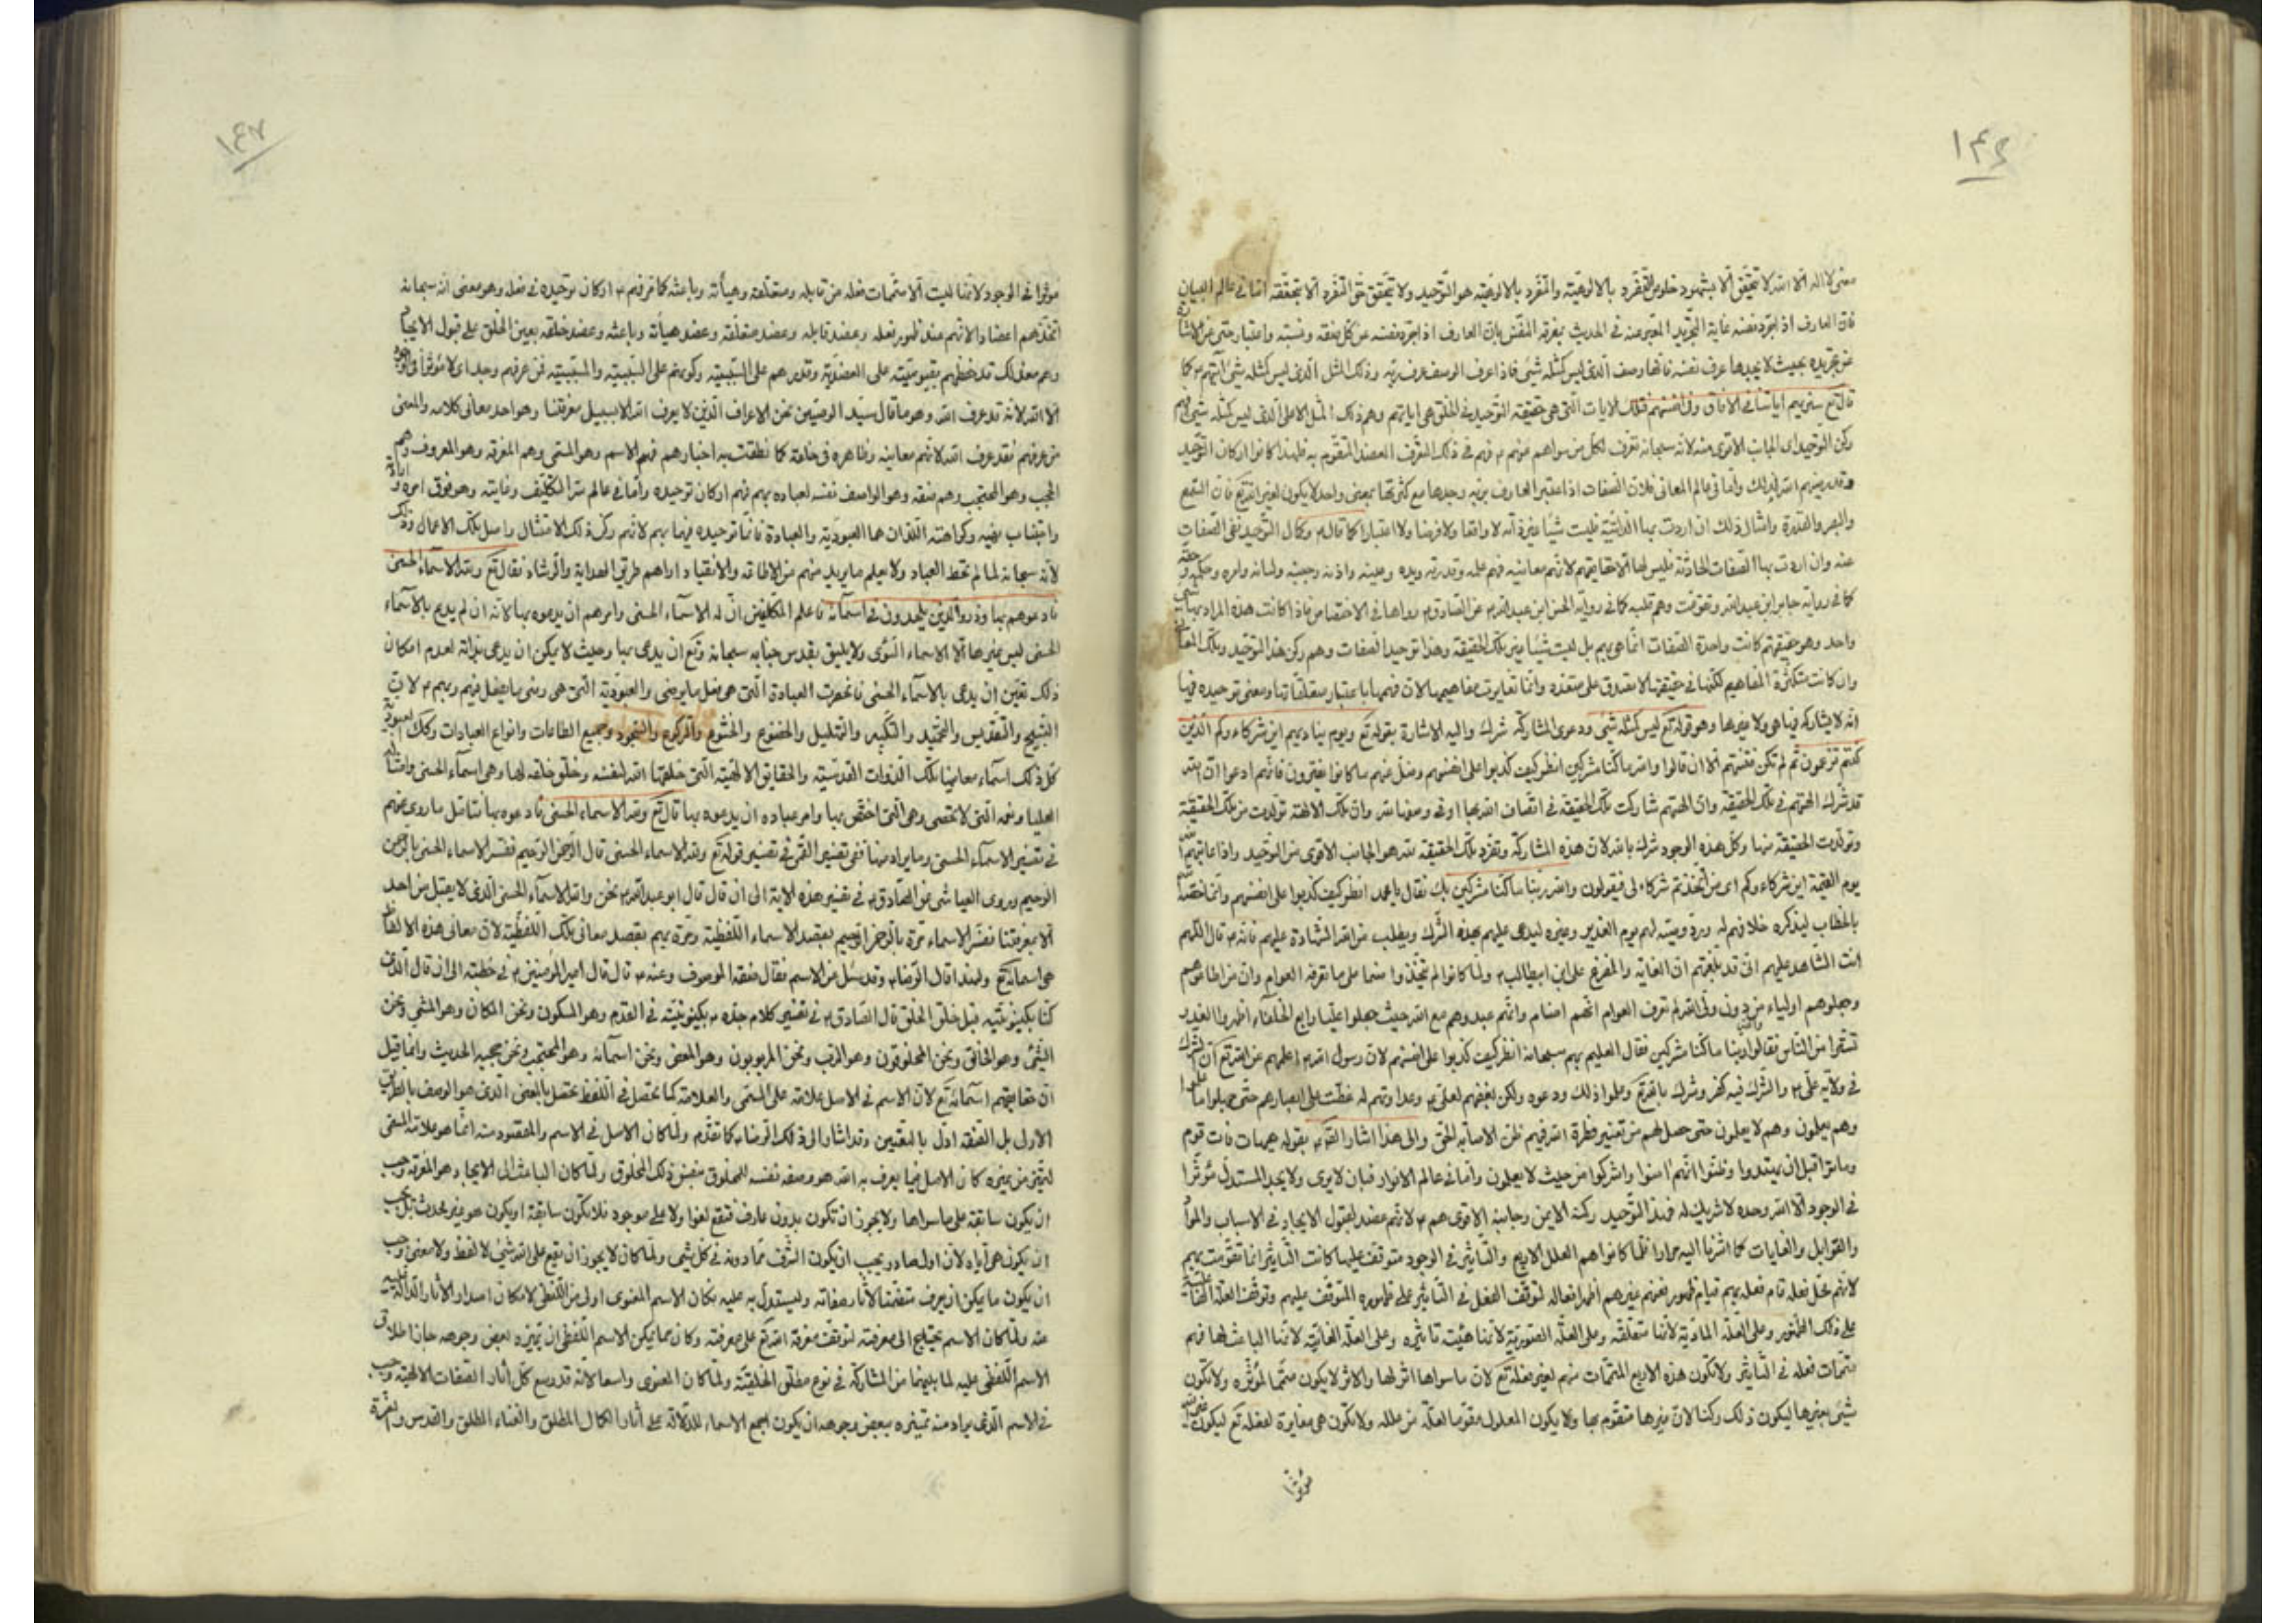 ١٤٦
معنى لا اله الا الله لا تتحقق الا بشهود خلوص التفرد بالالوهيّة والتفرد بالالوهيّة هو التّوحيد ولا يتحقق حق التفرد الا بتحققه امّا في عالم البيان
فان العارف اذا جرّد نفسه غاية التّجريد المعبر عنه في الحديث بمعرفة النفس بان العارف اذا جرد نفسه عن كلّ نعته ونسبة واعتبار حتى عن الاشارة
عن تجريده بحيث لا يجدها عرف نفسه فانّها وصف الّذي ليس كمثله شيئ فاذا عرف الوصف عرف ربّه وذلك المثل الّذي ليس كمثله شيئ ايتهم كما
قال تع سنريهم اياتنا في الافاق وفي انفسهم فتلك الايات الّتي هي حقيقة التّوحيد في الخلق هي اياتهم وهم ذلك المثل الاعلى الّذي ليس كمثله شيئ فهم
ركن التوحيد اى الجانب الاقوى منه لانّه سبحانه تعرّف لكلّ من سواهم منهم بهم فهم في ذلك التعرّف العضد المتقوّم به فلهذا كانوا اركان التّوحيد
وقد بينهم الله لذلك وامّا في عالم المعاني فلان الصّفات اذا اعتبر العارف بربّه وجدها مع كثرتها بمعنى واحد لا يكون لغير الله تع فان السّمع
والبصر والقدرة وامثال ذلك ان اردت بها الذّاتيّة فليست شيئا غير ذاته لا واقعا ولا فرضا ولا اعتبارا كما قال وكمال التّوحيد نفى الصّفات
عنه وان اردت بها الصّفات الحادثة فليس لها الا حقايقهم لانّهم معانيه فهم علمه وقدرته ويده وعينه واذنه وجنبه ولسانه وامره وحكمه وحقّه
كما في رواية جابر ابن عبد الله وتقدّمت وهم قلبه كما في رواية الحسن ابن عبد الله عن الصّادق رواها في الاختصاص فاذا كانت هذه المراد بها شيئ
واحد وهو حقيقتهم كانت واحدة الصّفات انّما هي بهم بل ليست شيئا غير تلك الحقيقة وهذا توحيد الصّفات وهم ركن هذا التّوحيد وتلك المعاني
وان كانت متكثّرة المفاهيم لكنّها في حقيقتها لا تصدق على متعدد وانّما تغايرت مفاهيمها لان فهمها باعتبار متعلّقاتها ومعنى توحيده فيها
انه لا يشاركه فيها هي ولا غيرها وهو قوله تع ليس كمثله شيئ ودعوى المشاركة شرك واليه الاشارة بقوله تع ويوم يناديهم اين شركاءوكم الّذين
كنتم تزعمون ثمّ لم تكن فتنتهم الا ان قالوا والله ربنا ما كنّا مشركين انظر كيف كذبوا على انفسهم وضلّ عنهم ما كانوا يفترون فانّهم ادعوا انّ الله
قد شرك الهتهم في تلك الحقيقة وان الهتهم شاركت تلك الحقيقة في اتّصاف الله بها او في وصفها لله وان تلك الالهة تولّدت من تلك الحقيقة
وتولّدت الحقيقة منها وكلّ هذه الوجود شرك بالله لان هذه المشاركة وتفرّد تلك الحقيقة لله هو الجانب الاقوى من التّوحيد واذا عاتبهم الله
يوم القيمة اين شركاءوكم اى من اتّخذتم شركاء لي فيقولون والله ربّنا ما كنّا مشركين بك فقال يا محمد انظر كيف كذبوا على انفسهم وانّما خصّه
بالخطاب ليذكره خلافهم له ورد وصيّته لهم يوم الغدير وغيره ليدعى عليهم بهذه الشّرك ويطلب من الله الشّهادة عليهم فانّه قال اللهم
انت الشّاهد عليهم انّى قد بلّغتهم ان الغاية والمفزع على ابن ابيطالب ولما كانوا لم يتّخذوا صنما على ما تعرفه العوام وان من اطاعوهم
وجعلوهم اولياء من دون ولىّ الله لم تعرف العوام انّهم اصنام وانّهم عبدوهم مع الله حيث جعلوا عليّا رابع الخلفاء اظهروا العذر
تستّرا من النّاس فقالوا والله ربنا ما كنّا مشركين فقال العليم بهم سبحانه انظر كيف كذبوا على انفسهم لان رسول الله اعلمهم عن الله تع ان الشرك
في ولاية علىّ والشّرك فيه كفر وشرك بالله تع وعلموا ذلك ودعوه ولكن بغضهم لعلىّ وعداوتهم له غطّت على ابصارهم حتّى جهلوا ما علموا
وهم يعلمون وهم لا يعلمون حتى حصل لهم من تغيير فطرة الله فيهم ظن الاصابة الحق والى هذا اشار القائم بقوله هيهات فات قوم
وماتوا قبل ان يهتدوا وظنّوا انّهم امنوا واشركوا من حيث لا يعلمون وامّا في عالم الانوار فبان لا يرى ولا يجد المستدل مؤثّرا
في الوجود الا الله وحده لا شريك له فهذا التّوحيد ركنه الايمن وجانبه الاقوى هم لانّهم عضد لقبول الايجاد في الاسباب والموادّ
والقوابل والغايات كما اشرنا اليه مرارا فلمّا كانوا هم العلل الاربع والتّاثير في الوجود متوقف عليها كانت التّاثير انّما تقوّمت بهم
لانّهم محلّ فعله قام فعله بهم قيام ظهور فعنهم غيرهم اظهر افعاله لتوقّف الفعل في التّاثير على ظهوره المتوقّف عليهم وتوقّف العلّة الفاعلية
على ذلك الظّهور وعلى العلّة المادّية لانّها متعلّقه وعلى العلّة الصّوريّة لانّها هيئة تاثيره وعلى العلّة الغائيّة لانّها الباعث لها فهم
متمّمات فعله في التّاثير ولا تكون هذه الاربع المتمّمات منهم لغير فعله تع لان ما سواها اثر لها والاثر لا يكون متمّما لمؤثّره ولا يكون
شيئ بغيرها ليكون ذلك ركنا لان غيرها متقوّم بها ولا يكون المعلول مقوّما لعلّة من علله ولا تكون هي مغايرة لفعله تع ليكون غيره
مؤثرا
١٤٧
مؤثرا في الوجود لانّها ليست الا متمّمات فعله من قابله ومتعلّقه وهيأته وباعثه كما مرّ فهم اركان توحيده في فعله وهو معنى انه سبحانه
اتّخذهم اعضادا لانّهم عضد ظهور فعله وعضد قابله وعضد متعلّقه وعضد هيأته وباعثه وعضد خلقه بعين الخلق على قبول الايجاد
وهم مع ذلك قد حفظهم بقيوميّته على العضديّة وقدرهم على السّببيّة وكونهم على السّببيّة والمسبّبيّة فمن عرفهم وجد اى لا مؤثّر في الوجود
الا الله لانّه قد عرف الله وهو ما قال سيّد الوصيّين نحن الاعراف الّذين لا يعرف الله الا بسبيل معرفتنا وهو احد معاني كلامه والمعنى
من عرفهم فقد عرف الله لانّهم معانيه وظاهره في خلقه كما نطقت به اخبارهم فهم الاسم وهو المسمّى وهم المعرفة وهو المعروف وهم
الحجب وهو المحتجب وهم صفته وهو الواصف نفسه لعباده بهم فهم اركان توحيده وامّا في عالم سرّ التّكليف وغايته وهو فوق امره وارادته
واجتناب نهيه وكراهته اللّذان هما العبوديّة والعبادة فانّما توحيده فيها بهم لانّهم ركن ذلك الامتثال واصل تلك الاعمال وذلك
لانّه سبحانه لما لم تحط العباد ولا يعلم ما يريد منهم من الاطاعة والانقياد اراهم طريق الهداية والرّشاد فقال تع ولله الاسماء الحسنى
فادعوه بها وذروا الّذين يلحدون في اسمائه فاعلم المكلّفين انّ له الاسماء الحسنى وامرهم ان يدعوه بها لانّه ان لم يدع بالاسماء
الحسنى ليس غيرها الا الاسماء السّوئى ولا يليق بقدس جنابه سبحانه وتع ان يدعى بها وحيث لا يمكن ان يدعى بذاته لعدم امكان
ذلك تعيّن ان يدعى بالاسماء الحسنى فانحصرت العبادة الّتي هي فعل ما يرضى والعبوديّة الّتي هي رضى ما يفعل فيهم وبهم لان
التّسبيح والتّقديس والتّحميد والتّكبير والتّهليل والخضوع والخشوع والرّكوع والسّجود وجميع الطّاعات وانواع العبادات وكذلك العبوديّة
كلّ ذلك اسماء معانيها تلك الذّوات القدسيّة والحقايق الالهيّة الّتي خلقها الله لنفسه وخلق خلقه لها وهي اسماء الحسنى وامثاله
العليا ونعمه الّتي لا تحصى وهي الّتي اختصّ بها وامر عباده ان يدعوه بها قال تع ولله الاسماء الحسنى فادعوه بها فتامّل ما روى عنهم
في تفسير الاسماء الحسنى وما يراد منها ففي تفسير القمّى في تفسير قوله تع ولله الاسماء الحسنى قال الرّحمن الرّحيم ففسّر الاسماء الحسنى بالرّحمن
الرحيم وروى العياشى عن الصّادق في تفسير هذه الاية الى ان قال قال ابو عبد الله نحن والله الاسماء الحسنى الّذي لا يقبل من احد
الا بمعرفتنا ففسّر الاسماء مرّة بالرّحمن الرّحيم بقصد الاسماء اللّفظية ومرّة بهم بقصد معاني تلك اللّفظيّة لان معاني هذه الالفاظ
هي اسمائه تع ولهذا قال الرّضا وقد سئل عن الاسم فقال صفة الموصوف وعنه قال قال امير المؤمنين في خطبته الى ان قال الّذي
كنّا بكينونيّته قبل خلق الخلق قال الصّادق في تفسير كلام جدّه بكينونيّته في القدم وهو المكوّن ونحن المكان وهو المشيئ ونحن
الشّيئ وهو الخالق ونحن المخلوقون وهو الرّب ونحن المربوبون وهو المعنى ونحن اسمائه وهو المحتجب ونحن حجبه الحديث وانّما قيل
ان حقايقهم اسمائه تع لان الاسم في الاصل علامة على المسمّى والعلامة كما تحصل في اللّفظ تحصل بالمعنى الّذي هو الوصف بالطريق
الاولى بل الصّفة اولى بالتعيين وقد اشار الى ذلك الرّضا كما تقدّم ولما كان الاصل في الاسم والمقصود منه انّما هو علامة المسمى
لتميّز من غيره كان الاصل فيما يعرف به الله هو وصفه نفسه للمخلوق بنفس ذلك المخلوق ولما كان الباعث الى الايجاد هو المعرفة وجب
ان يكون سابقة على ما سواها ولا يجوز ان تكون بدون عارف فتقع لغوا ولا على موجود فلا تكون سابقة او يكون هو غير محدث بل يجب
ان يكون هي اياه لان اول صادر يجب ان يكون اشرف ممّا دونه في كلّ شيئ ولما كان لا يجوز ان يقع على الله شيئ لا لفظ ولا معنى وجب
ان يكون ما يمكن ان يعرف متضمّنا لاثار صفاته وليستدلّ به عليه فكان الاسم المعنوى اولى من اللّفظى لامكان اصدار الاثار الدّالة عليه
عنه ولما كان الاسم يحتاج الى معرفته لتوقّف معرفة الله تع على معرفته وكان ممّا يمكن الاسم اللّفظى ان يميّزه ببعض وجوهه جاز اطلاق
الاسم اللّفظى عليه لما بينهما من المشاركة في نوع مطلق الخلقيّة ولما كان المعنوى واسعا لانّه قد وسع كلّ اثار الصّفات الالهيّة وجب
في الاسم الّذي يراد منه تمييزه ببعض وجوهه ان يكون اجمع الاسماء للدّلالة على اثار الكمال المطلق والغناء المطلق والقدس والعزّة